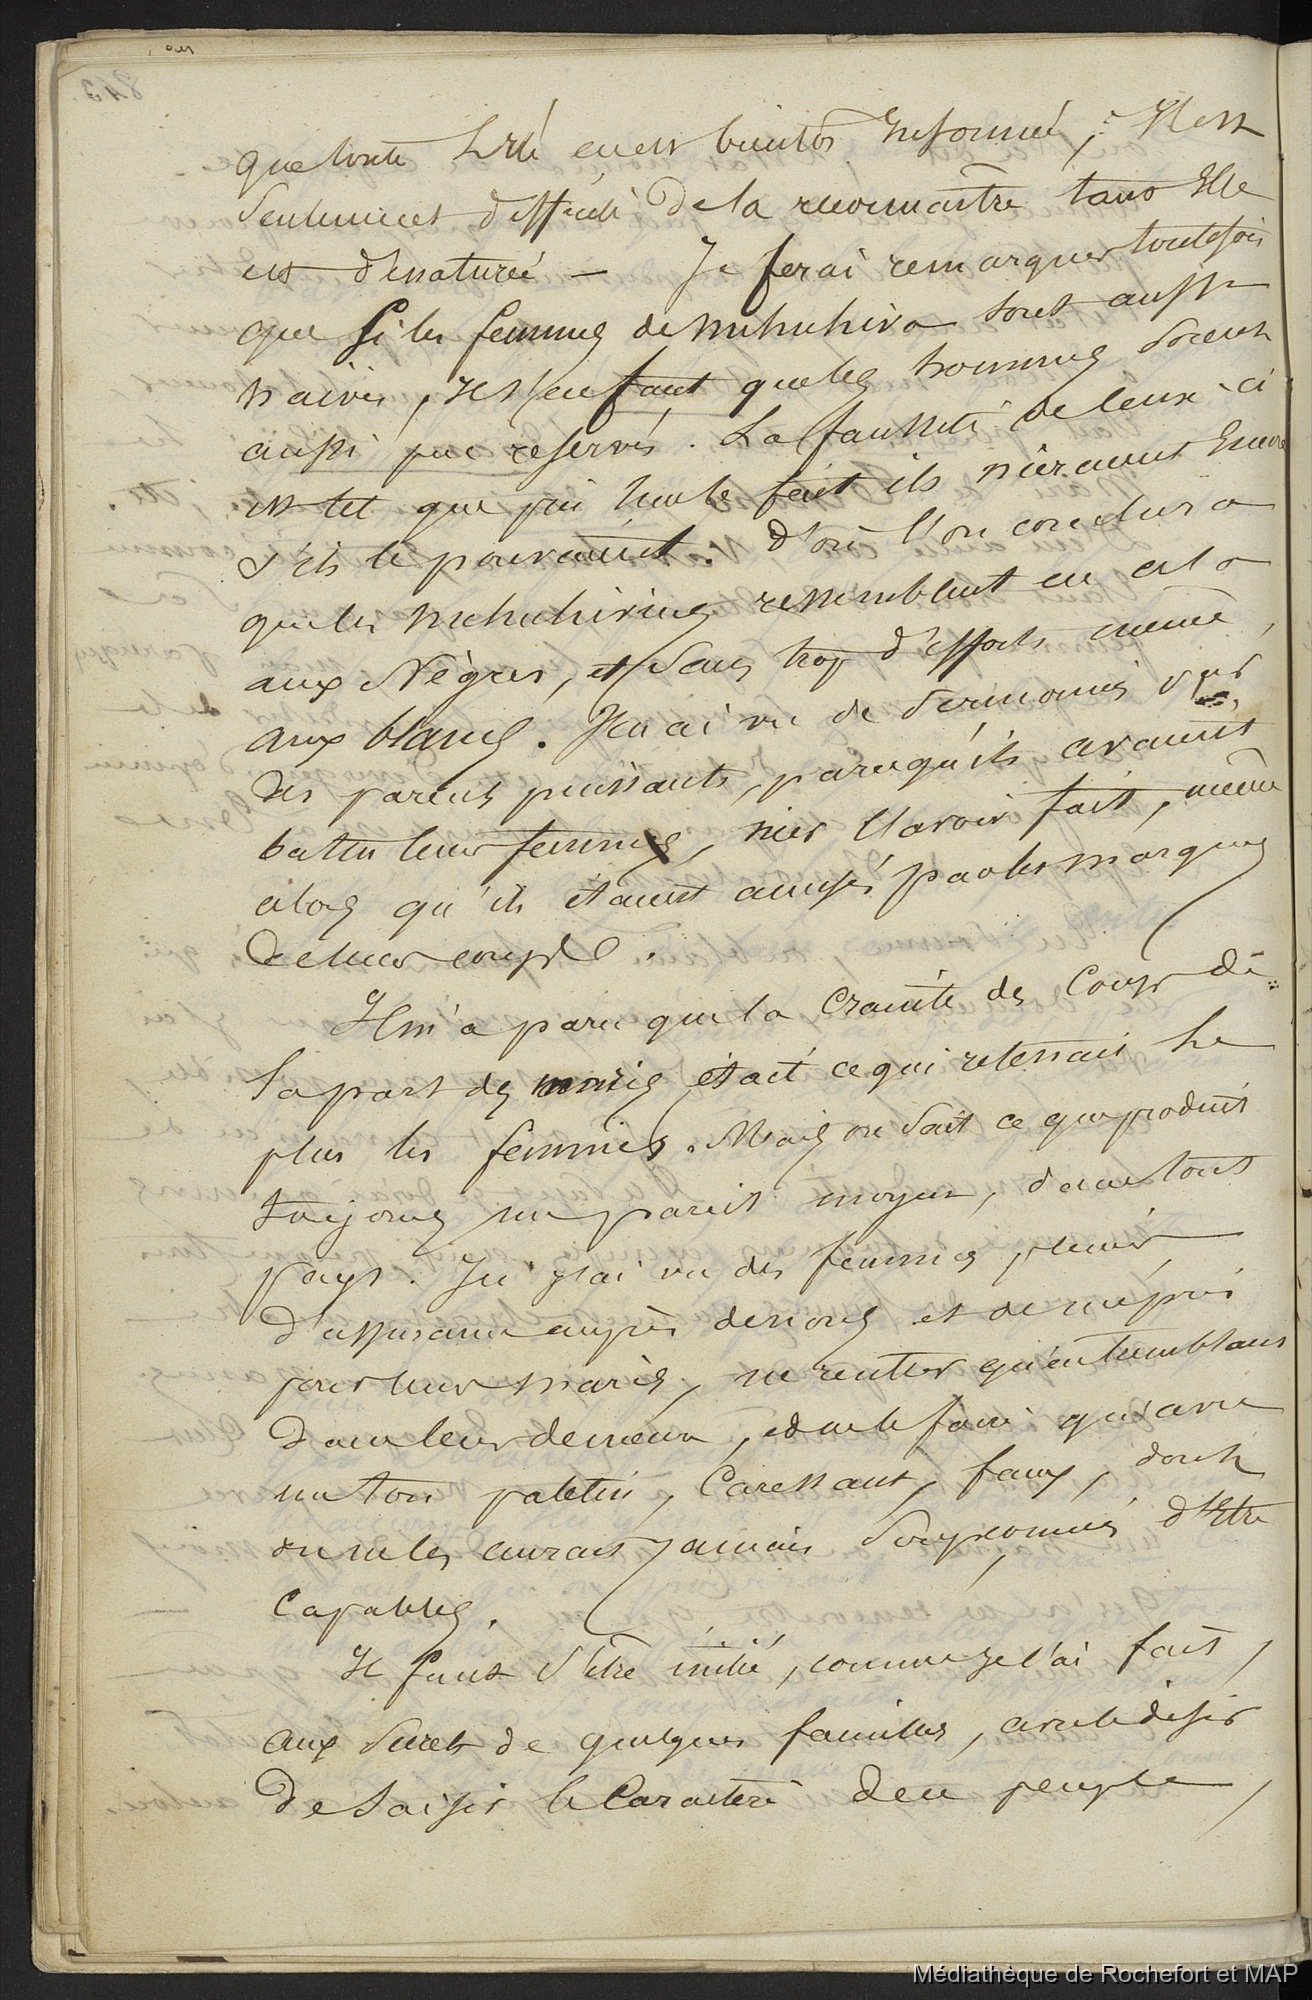 que toute l'île en est bientôt informée ; Il est
seulement difficile de la reconnaître tant Elle
est dénaturée — Je ferai remarquer toutefois
que si les femmes de Nuhuhiva sont aussi
naives, il s'en faut que les hommes soient
aussi peu réservés. La fausseté de ceux-ci
est tel que pris sur le fait ils nieraient Encore
s'ils le pouvaient. d'où l'on conclura
que les Nuhuhiviens ressemblent en cela
aux Nègres, et sans trop d'efforts même,
aux blancs. J'en ai vu de sermonés par
des parents puissants, parcequ'ils avaient
battu leurs femmes, nier l'avoir fait, même
alors qu'ils étaient accusés par les marques
de leurs coups.
Il m'a paru que la Crainte des Coups de
la part des maris était ce qui retenait le
plus les femmes. Mais on sait ce que produit
toujours un pareil moyen, dans tout
pays. Ici j'ai vu des femmes pleines
d'assurance auprès de nous et de mépris
pour leurs maris, ne rentrer qu'en tremblant
dans leur demeure, et ne le faire qu'avec
un ton patelin, Caressant, faux, dont
on ne les aurait jamais soupçonnées d'être
Capables.
Il faut s'être initié, comme je l'ai fait,
aux secrets de quelques familles, avec le désir
de saisir le Caractère d'un peuple,
Médiathèque de Rochefort et MAP